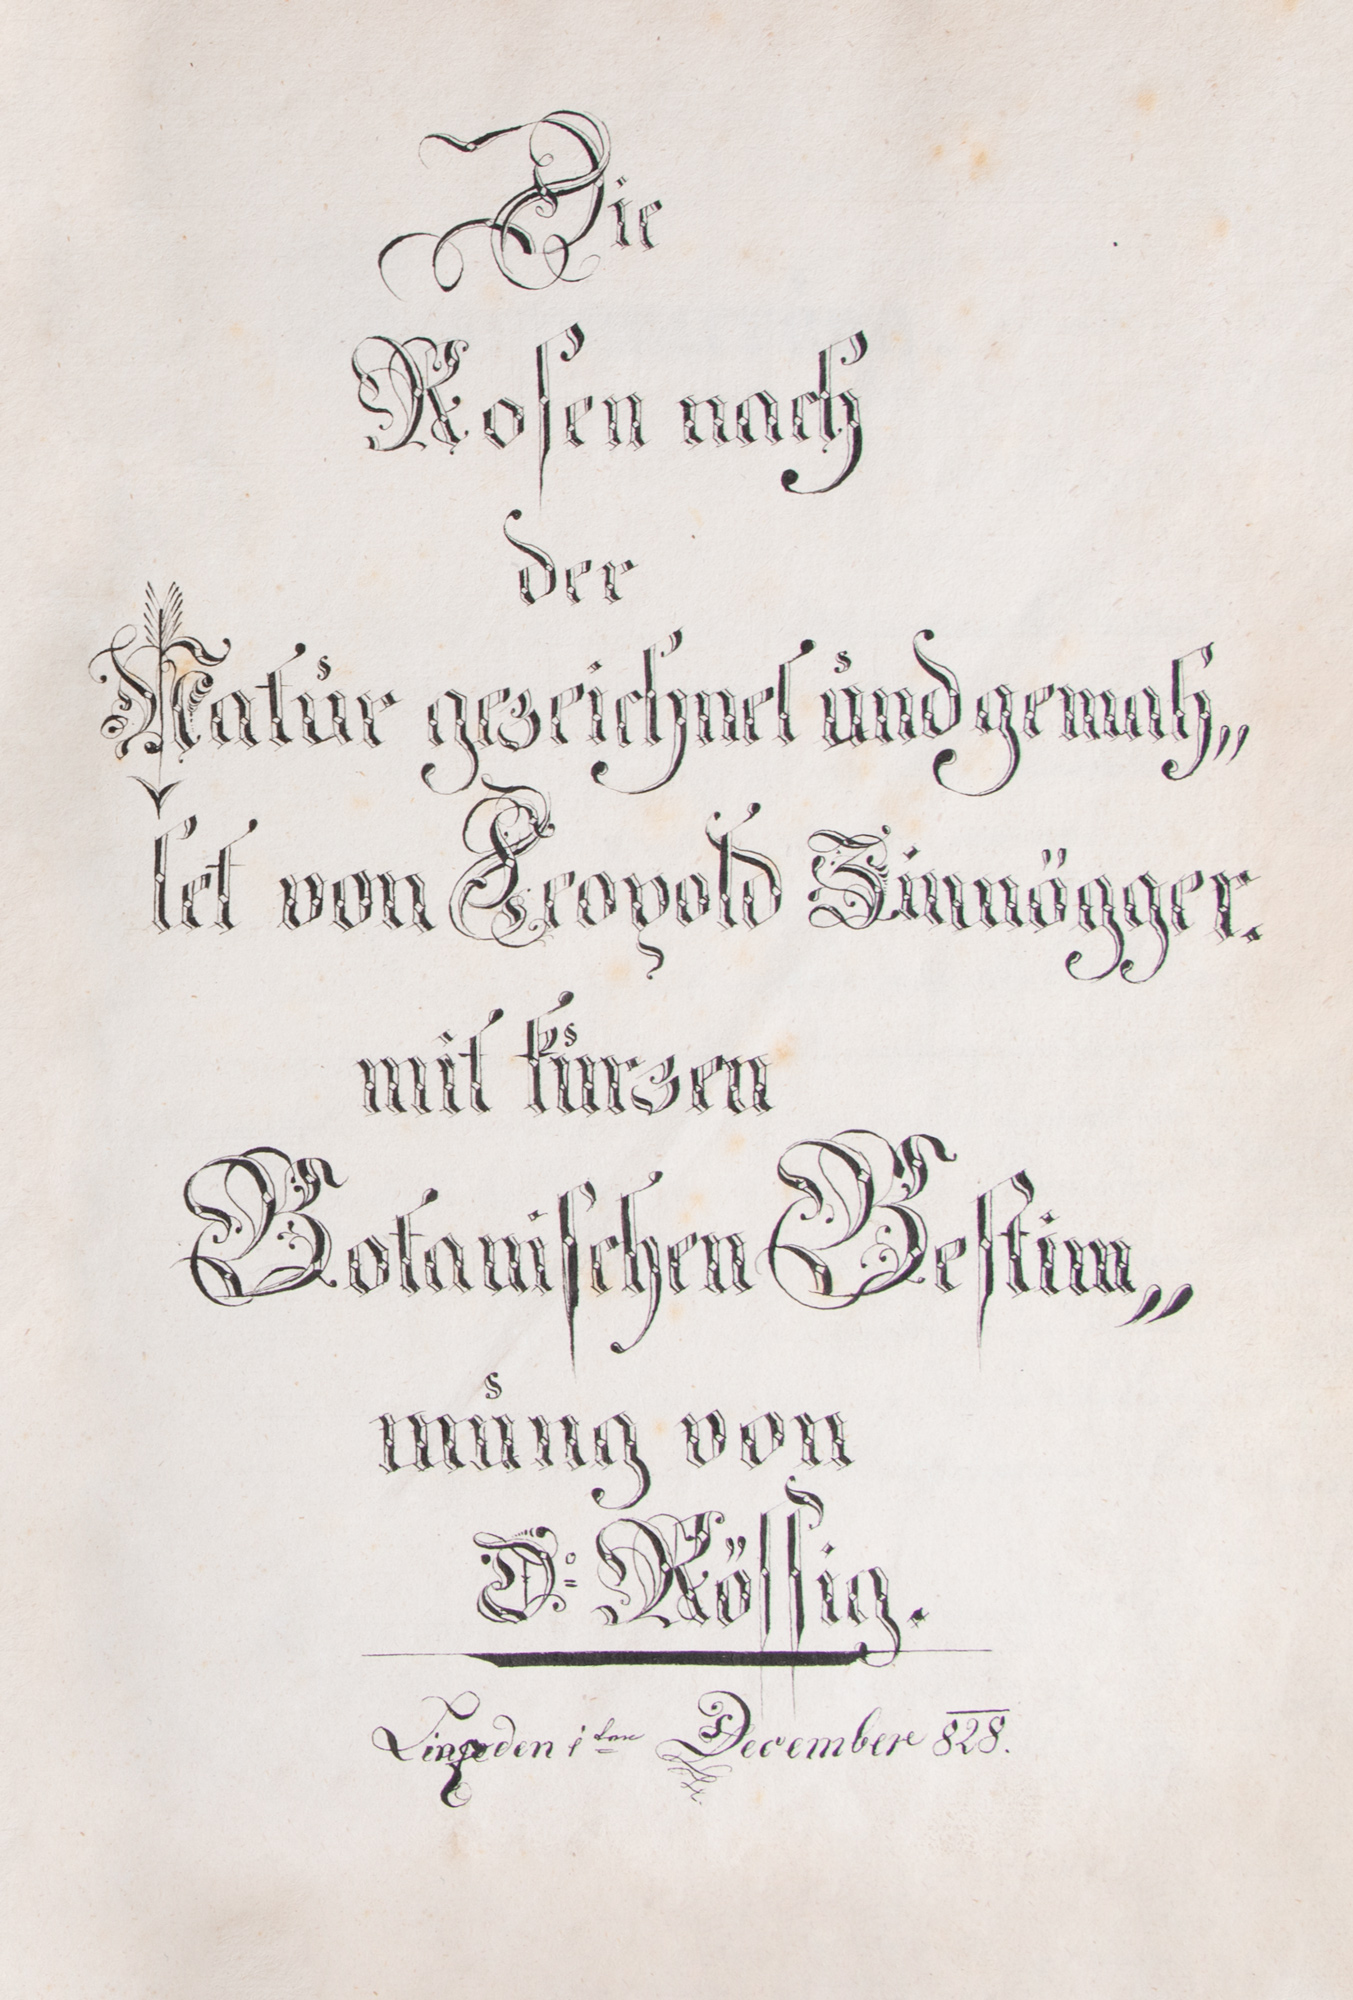 Die
Rosen nach
der
Natur gezeichnet und gemah„
let von Leopold Zinnögger.
mit kurzen
Botanischen Bestim„
mung von
D: Rössig.
den 1ten December 828.